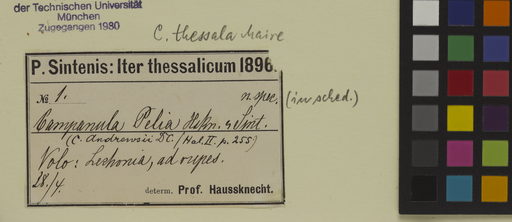 der Technischen Universität
München
Zugegangen 1980
C. thessala Maire
P. Sintenis: Iter thessalicum 1896.
No. 1.
n. spec. (in sched.)
Campanula Pelia Hskn. & Sint.
(C. Andrewsii DC. / Hal. II. p. 255)
Volo: Lechonia, ad rupes.
28./4.
determ. Prof. Haussknecht.